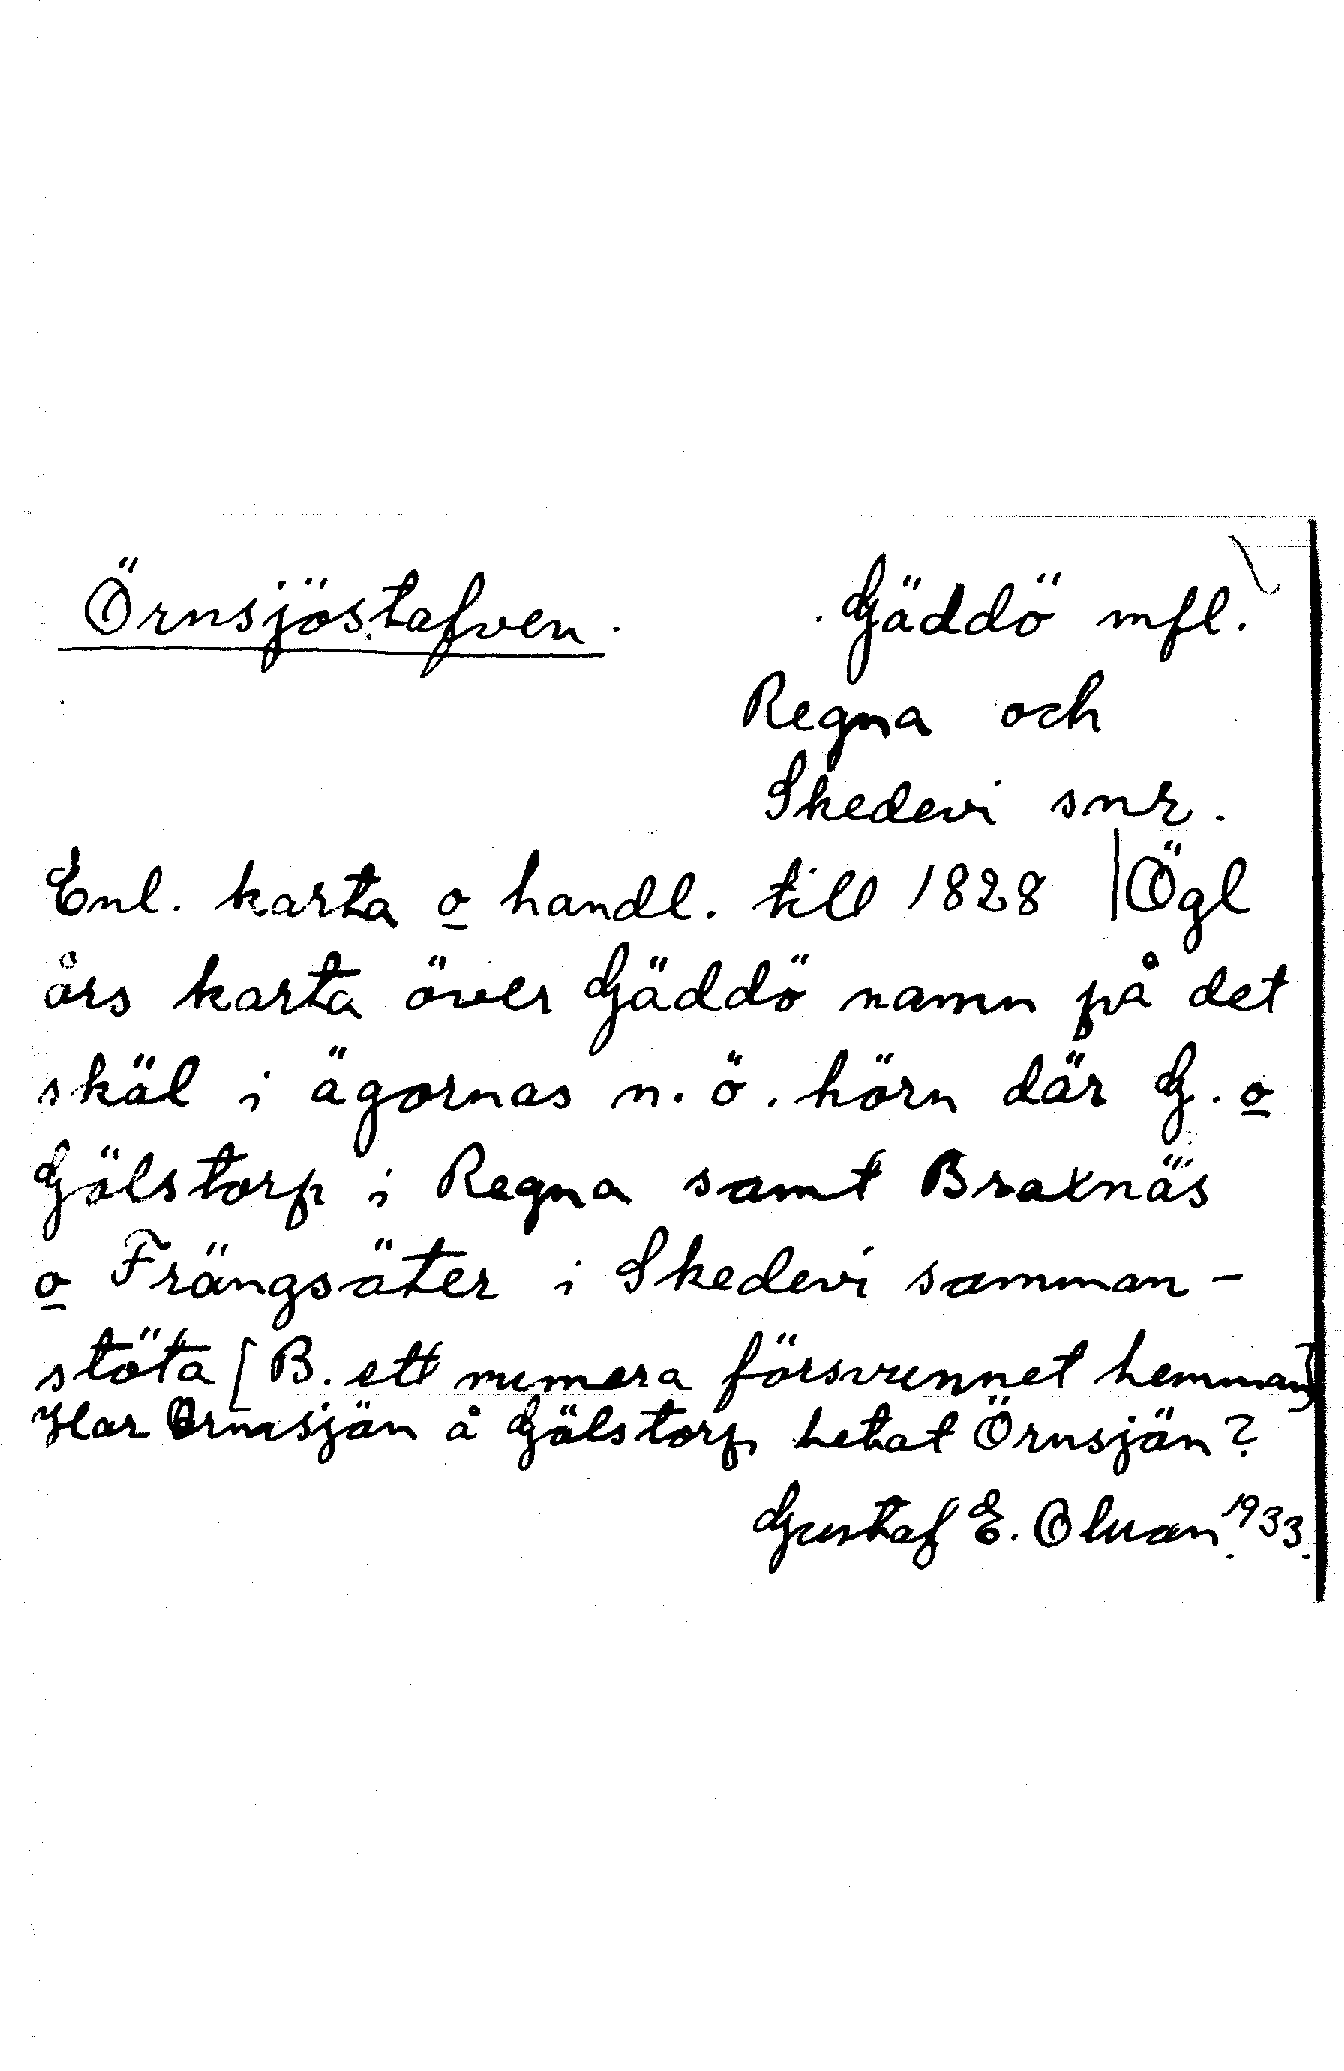 Örnsjöstafven. Gäddö mfl.
Regna och
Skedevi snr.
Enl. karta o handl. till 1828 |Ögl
års karta över Gäddö namn på det
skäl i ägornas n.ö. hörn där G. o
Gölstorp i Regna samt Braxnäs
o Frängsäter i Skedevi samman-
stöta [B. ett numera försvunnet hemman]
Har Ormsjön å Gölstorp hetat Örnsjön?
Gustaf E. Olsson 1933.